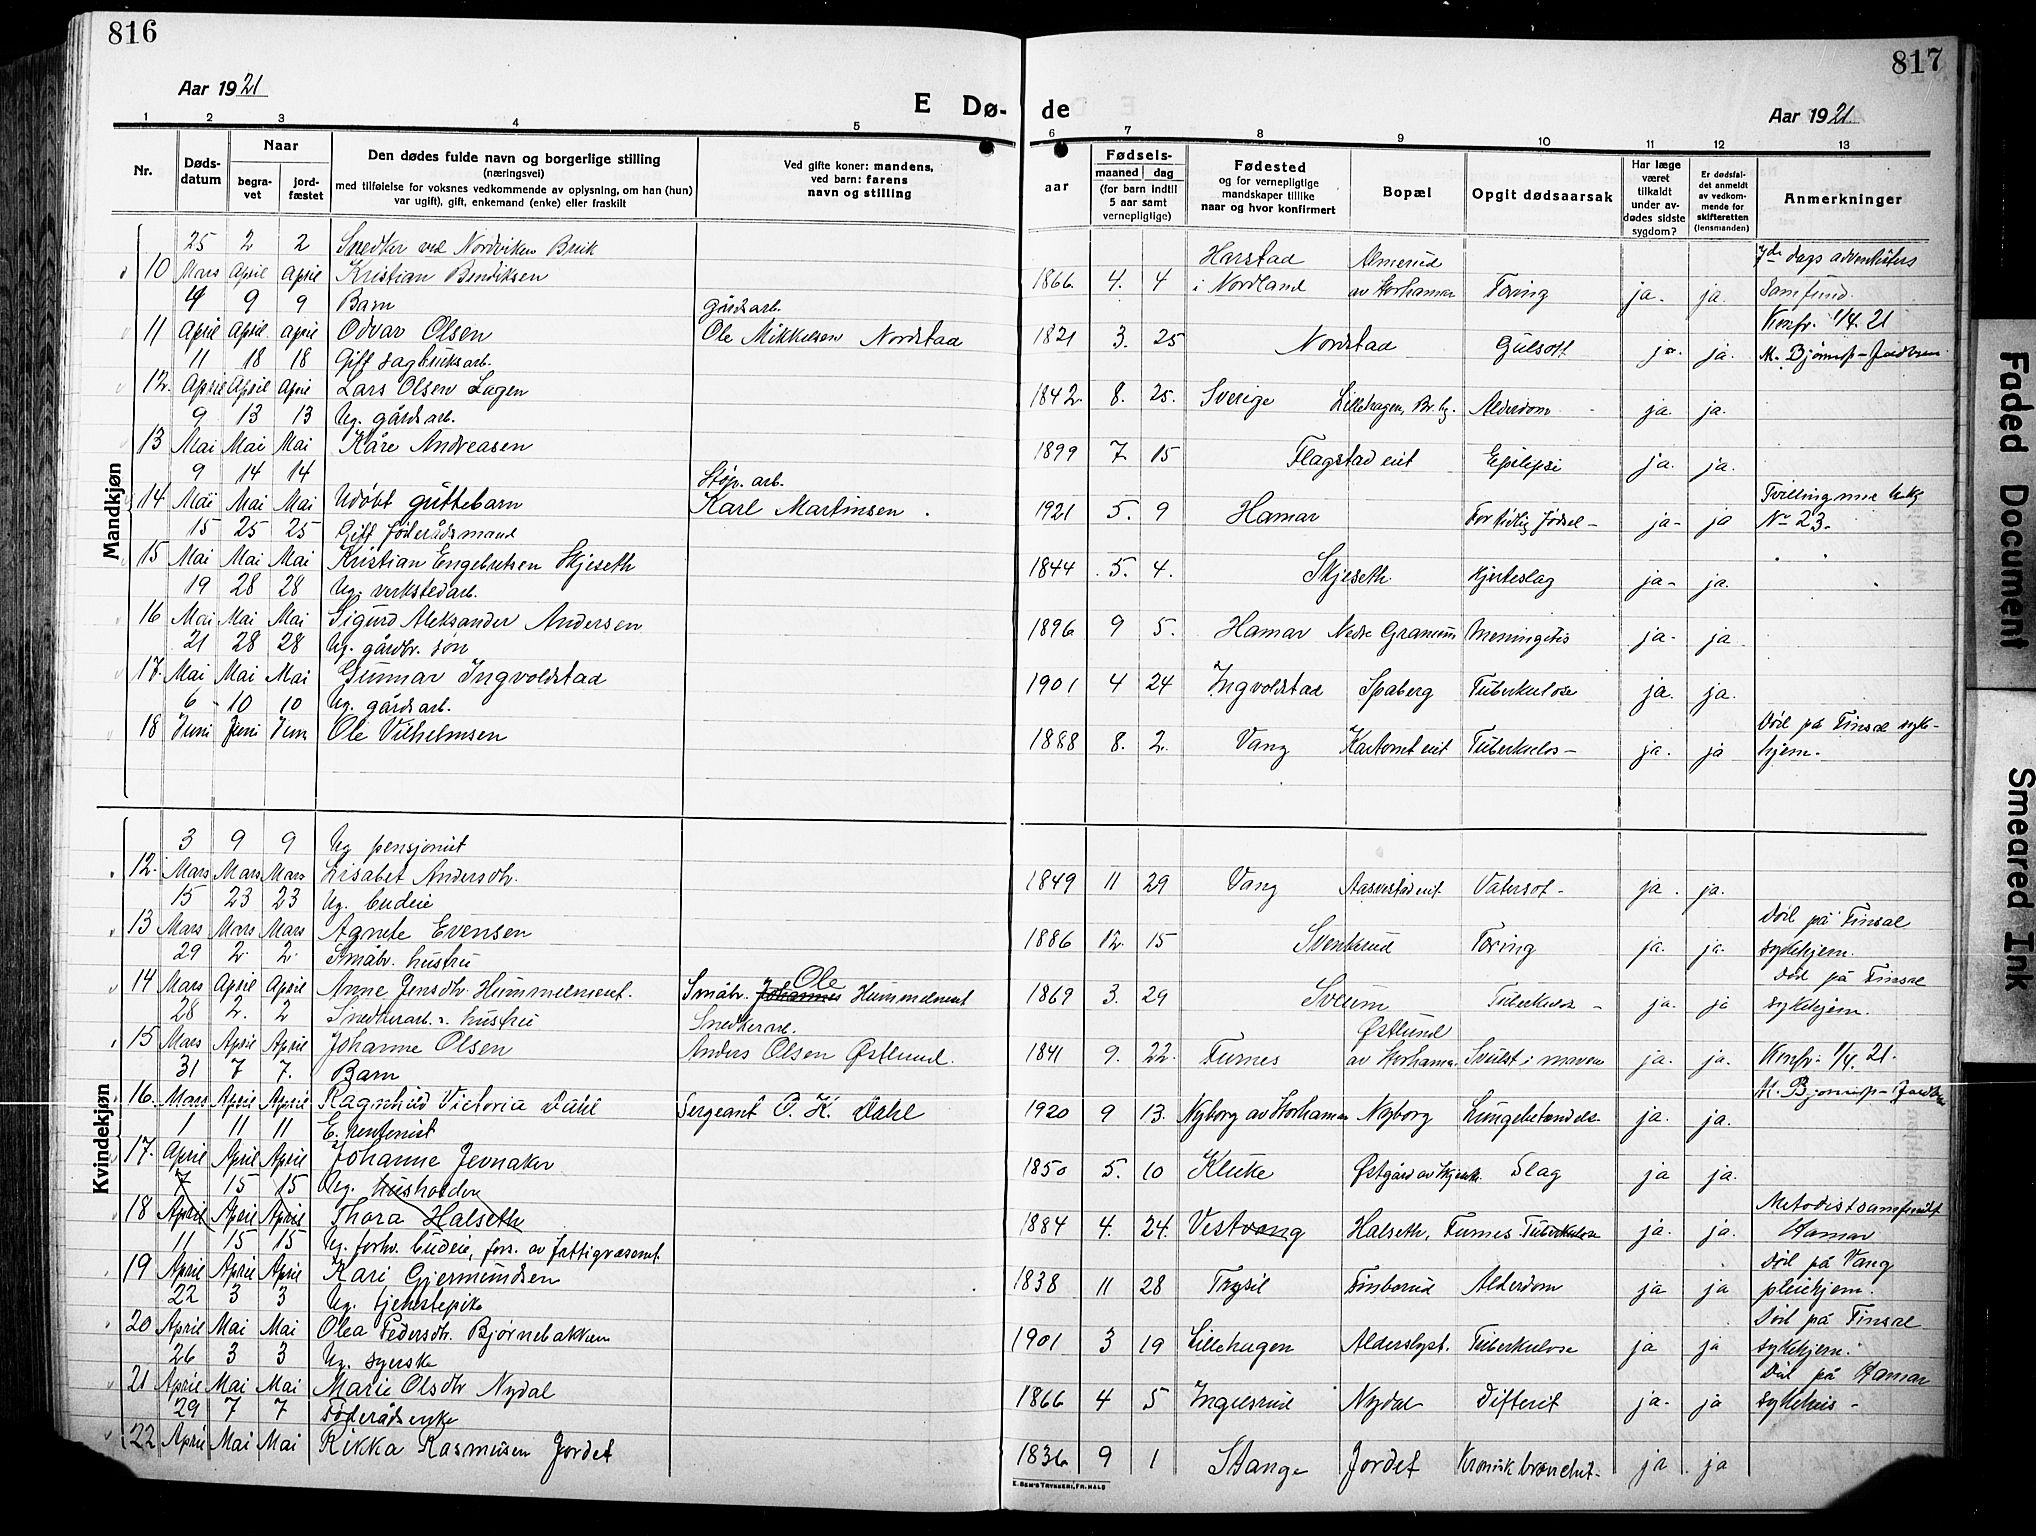 816
817
Aar 1921
E Dø-
de
Aar 1921.
1 2 3 4 5 6 7 8 9 10 11 12 13
Nr.
Døds-
datum
Naar
begra-
vet
jord-
fæstet
Den dødes fulde navn og borgerlige stilling
(næringsvei)
med tilføielse for voksnes vedkommende av oplysning, om han (hun)
var ugift), gift, enkemand (enke) eller fraskilt
Ved gifte koner: mandens,
ved barn: farens
navn og stilling
Fødsels-
aar
maaned
dag
(for barn indtil
5 aar samt
vernepligtige)
Fødested
og for vernepligtige
mandskaper tillike
naar og hvor konfirmert
Bopæl
Opgit dødsaarsak
Har læge
været
tilkaldt
under av-
dødes sidste
sygdom?
Er dødsfal-
det anmeldt
av vedkom-
mende for
skifteretten
(lensmanden)
Anmerkninger
Mandkjøn
25 2 2 Snedker ved Nordviken Bruk Harstad Almerud 7de dags adventisters
10 Mars April April Kristian Bendiksen 1866 4. 4 i Nordland av Storhamar Tæring ja. ja. Samfund.
4 9 9 Barn gårdsarb. Konfr. 1/4. 21
11 April April April Odvar Olsen Ole Mikkelsen Nordstad 1821 3. 25 Nordstad Gulsott ja. ja.
11 18 18 Gift sagbruksarb.
12. April April April Lars Olsen Lagen 1842 8. 25. Sverige Lillehagen, Br.by. Alderdom ja ja.
9 13 13 Ug. gårdsarb.
13 Mai Mai Mai Kåre Andreasen 1899 7 15 Flagstad eiet Epilepsi ja. ja.
9 14 14 Støp. arb. Tvilling med
14. Mai Mai Mai Udøbt guttebarn Karl Martinsen 1921 5. 9 Hamar For tidlig fødsel- ja- ja No 23.
15 25 25 Gift føderådsmand
15 Mai Mai Mai Kristian Engebretsen Skjeseth 1844 5. 4. Skjeseth Hjerteslag ja- ja.
19 28 28 Ug. verkstedarb.
16 Mai Mai Mai Sigurd Aleksander Andersen 1896 9 5. Hamar Nedre Granum meningitis ja- ja
21 28 28 Ug. gårdbr. søn
17. Mai Mai Mai Gunnar Ingvoldstad 1901 4 24 Ingvoldstad Spaberg Tuberkulose ja. ja.
6 10 10 Ug. gårdsarb. Død på Finsal syke-
18 Juni Juni Juni Ole Vilhelmsen 1888 8. 2. Vang Kartomt eiet Tuberkulos- ja. ja hjem.
Kvindekjøn
3 9 9 Ug pensjonist
12. Mars Mars Mars Lisabet Andersdtr. 1849 11 29 Vang Aasvestad eiet Vatersot- ja ja.
15 23 23 Ug. budeie Død på Finsal
13 Mars Mars Mars Agnete Evensen 1886 12. 15 Svenkerud Tæring ja. ja. sykehjem.
29 2. 2. Småbr. hustru Død på Finsal
14 Mars April April Anne Jensdtr. Hummelment. Småbr. Johannes Ole Hummelment 1869 3. 29 Sveum Tuberkulose- ja. ja sykehjem.
28 2. 2 Snedkerarb.s. hustru Snedkerarb. Østlund
15 Mars April April Johanne Olsen Anders Olsen Østlund. 1841 9. 22. Furnes av Storhamar. Svulst i maven ja. ja. Konfr. 1/4. 21.
31 7 7. Barn
16. Mars April April Ragnhild Victoria Dahl Sergeant O. K. Dahl 1920 9 13. Nyborg av Storhamar Nyborg Lungebetændels. ja. ja.
1 11 11 E. rentenist
17. April April April Johanne Jevnaker 1850 5. 10 Kluke Østgård av Skjeseth. Slag ja ja.
7 15 15 Ug. husholder Metodistsamfundet
18 April April April Thora Halseth 1884 4. 24. Vestvang Halseth, Furnes Tuberkulose ja. ja. Hamar
11 15 15 Ug. forhv. budeie, fors. av fattigvæsenet Død på Vang
19 April April April Kari Gjermundsen 1838 11 28 Trysil Finborud Alderdom ja ja pleiehjem.
22 3 3 Ug. tjenstepike Død på Finsal
20 April Mai Mai Olea Pedersdtr. Bjørnebakken 1901 3 19 Lillehagen Alderslyst. Tuberkulose ja ja sykehjem.
26 3 3 Ug. syerske Død på Hamar
21 April Mai Mai Marie Olsdtr Nydal 1866 4 5 Ingelsrud Nydal Difterit ja. ja sykehus-
29 7 7 Føderådsenke
22 April Mai Mai Rikka Rasmussen Jordet 1836 9 1 Stange Jordet Kronisk bronchit- ja ja
Faded Document
Smeared Ink